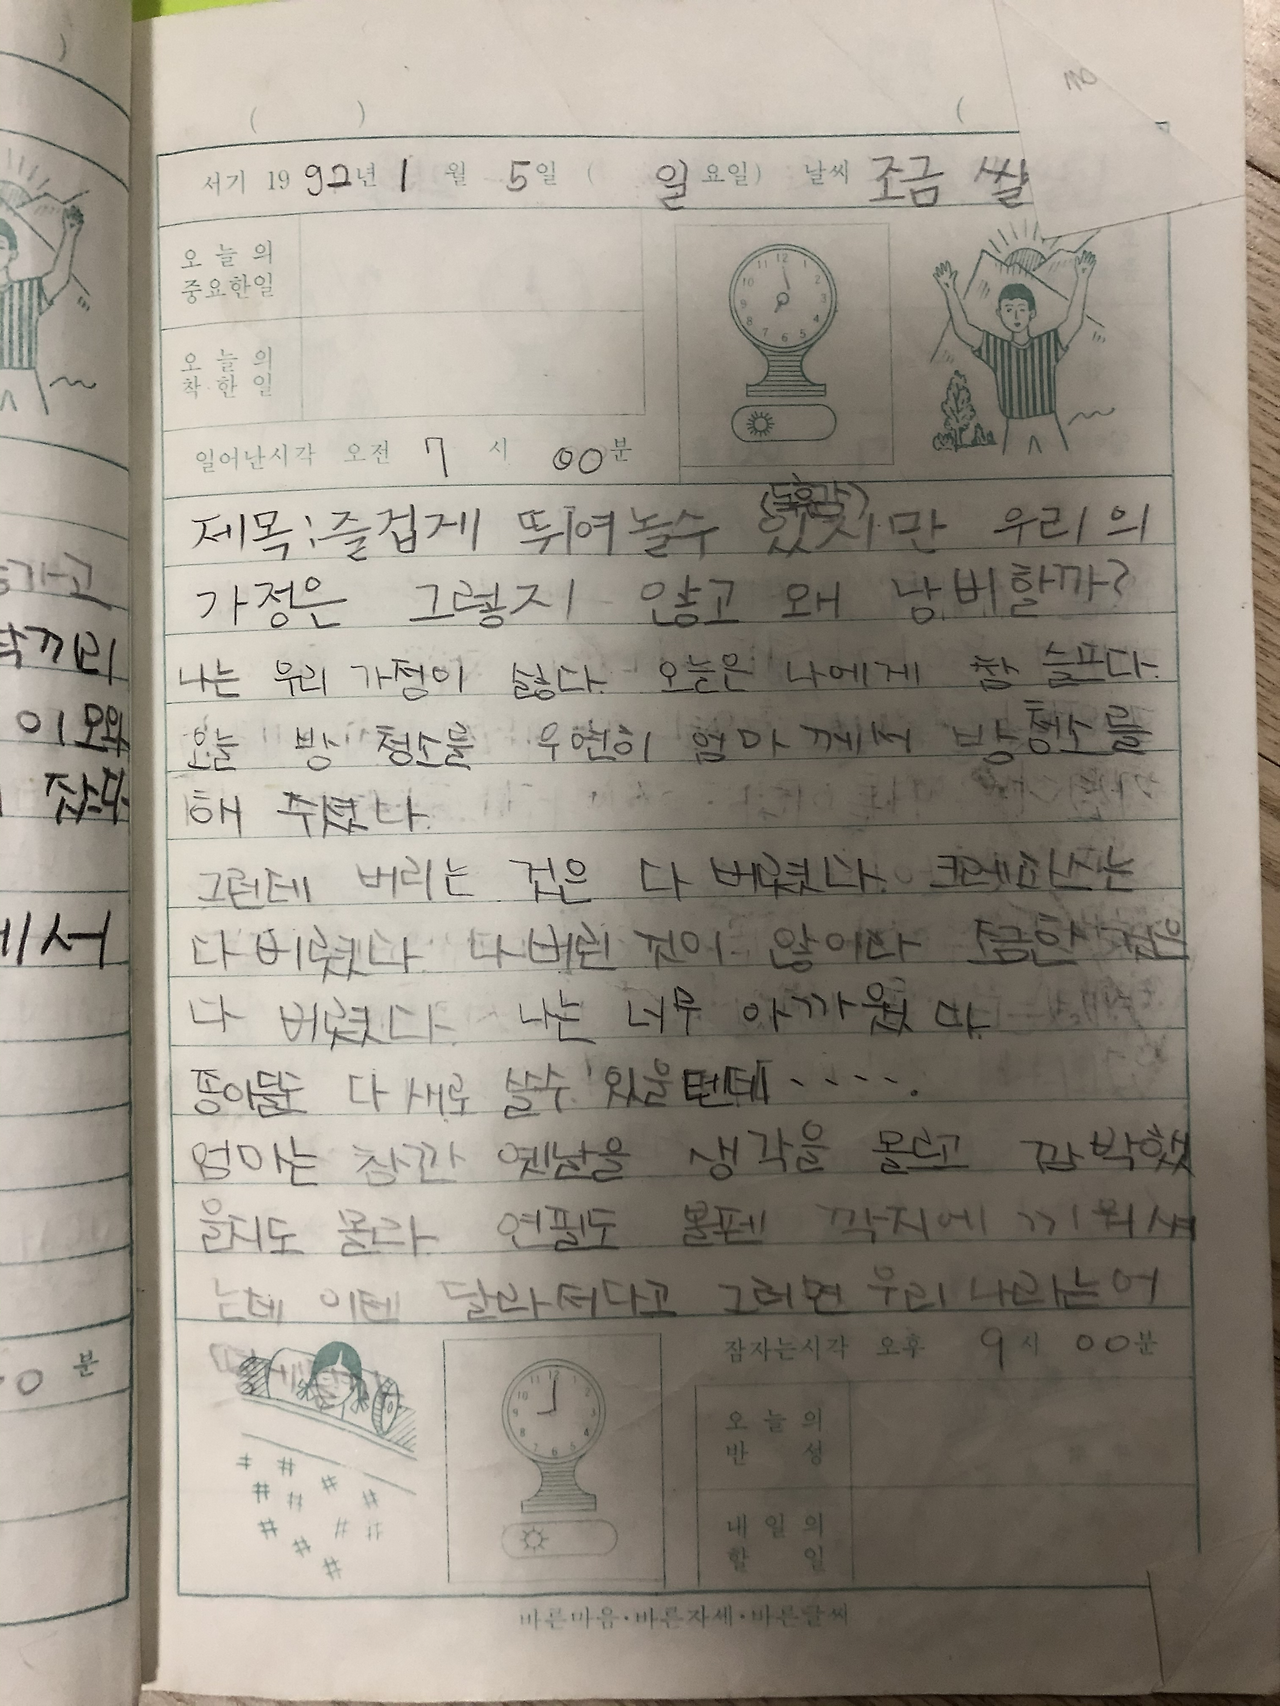 서기 1992년 1월 5일 ( 일요일) 날씨 조금 쌀
오늘의 중요한일
오늘의 착한일
일어난시각 오전 7시 00분
(독후감)
제목:즐겁게 뛰여놀수 있지만 우리의
가정은 그렇지 않고 왜 낭비할까?
나는 우리 가정이 싫다. 오늘은 나에게 참 슬프다.
오늘 방 청소를 우연히 엄마께서 방청소를
해 주셨다.
그런데 버리는 것은 다 버렸다. 크레파스는
다 버렸다. 다버린 것이 않이라 조금한 것은
다 버렸다. 나는 너무 아까웠다.
종이들도 다 새로 쓸수 있을텐데.....
엄마는 참깐 옛날을 생각을 몰르고 깜박했
을지도 몰라. 연필도 볼펜 깍지에 끼워서
는데 이텐 달라서다고 그러면 우리나라는어
잠자는시각 오후 9시 00분
오늘의 반성
내일의 할일
바른마음·바른자세·바른글씨
가고
끼리
이모와
잤다
에서
분